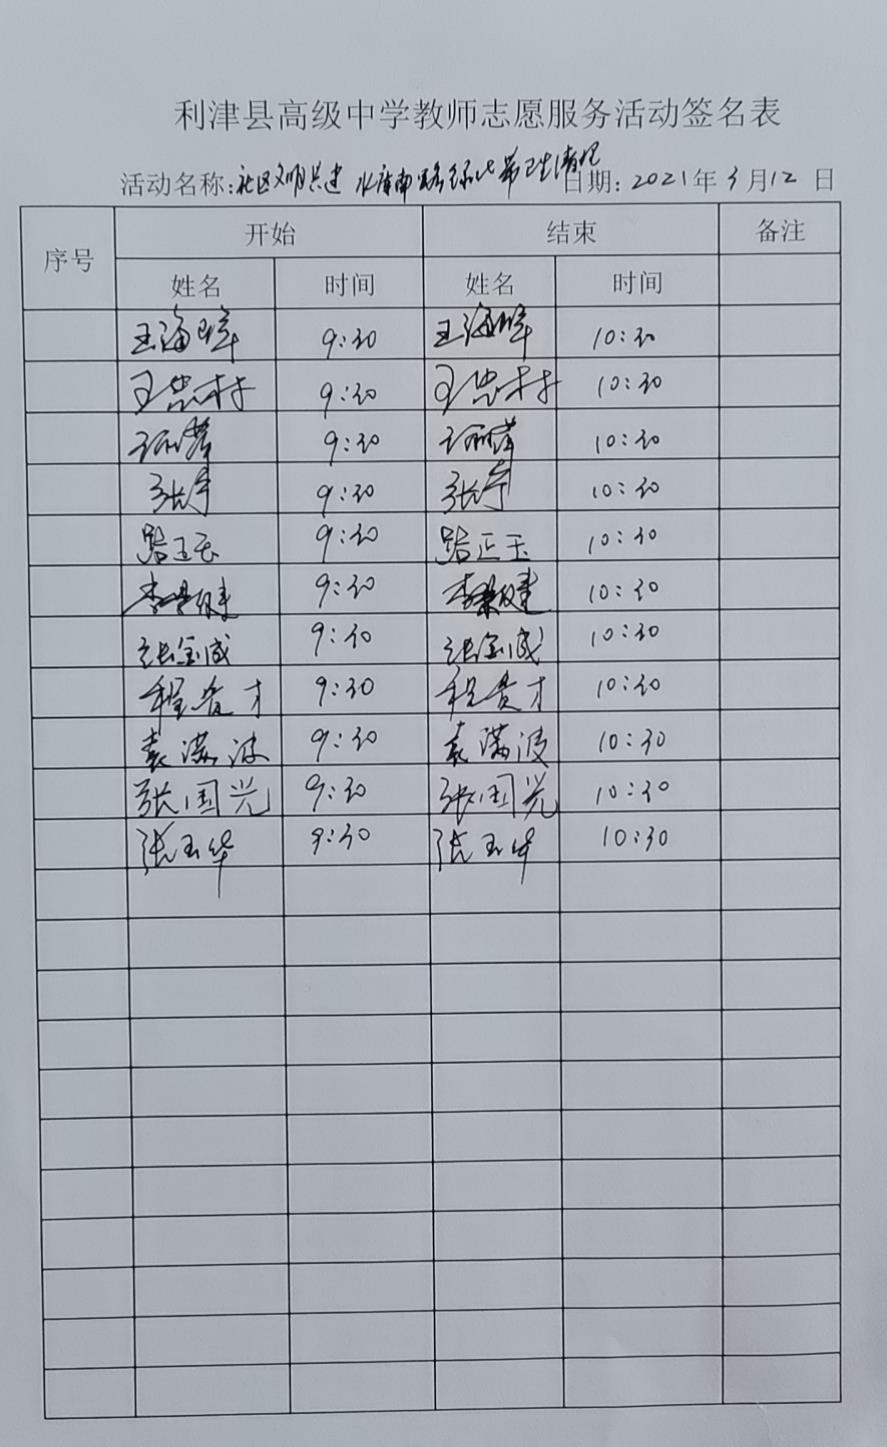 利津县高级中学教师志愿服务活动签名表
活动名称:社区文明共建 水库南路绿化带卫生清理 日期: 2021年3月12日
序号 开始 结束 备注
姓名 时间 姓名 时间
王海峰 9:30 王海峰 10:30
王忠村 9:30 王忠村 10:30
9:30 10:30
张宁 9:30 张宁 10:30
路正玉 9:30 路正玉 10:30
9:30 10:30
张金成 9:30 张金成 10:30
程贵才 9:30 程贵才 10:30
袁满波 9:30 袁满波 10:30
张国兴 9:30 张国光 10:30
张玉华 9:30 张玉华 10:30